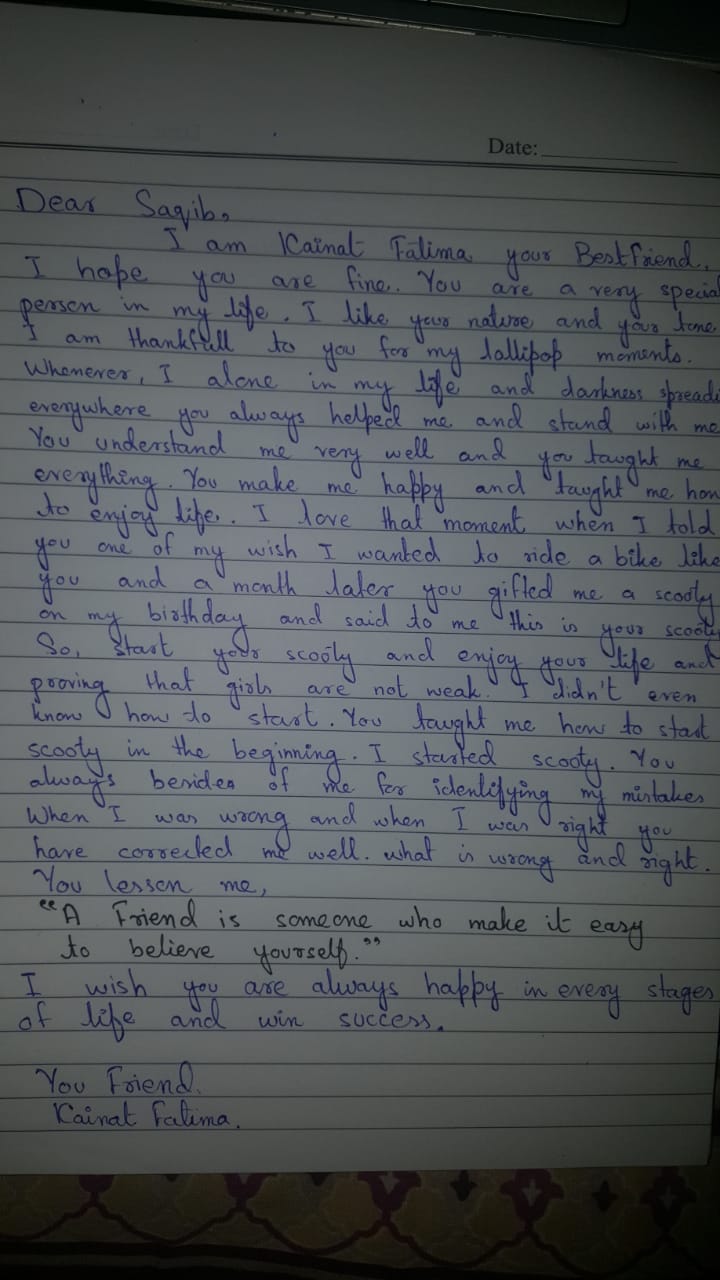 Date:
Dear Saqib,
I am Kainat Fatima your Bestfriend.
I hope you are fine. You are a very special
person in my life. I like your nature and your tone.
I am thankfull to you for my lollipop moments.
Whenever, I alone in my life and darkness spread
everywhere you always helped me and stand with me
You understand me very well and you taught me
everything. You make me happy and taught me how
to enjoy life. I love that moment when I told
you one of my wish I wanted to ride a bike like
you and a month later you gifted me a scooty
on my birthday and said to me this is your scooty
So, start your scooty and enjoy your life and
proving that girls are not weak. I didn't even
know how to start. You taught me how to start
scooty in the beginning. I started scooty. You
always besides of me for identifying my mistakes
When I was wrong and when I was right you
have corrected me well. what is wrong and right.
You lesson me,
"A Friend is someone who make it easy
to believe yourself."
I wish you are always happy in every stages
of life and win success.
You Friend.
Kainat Fatima.